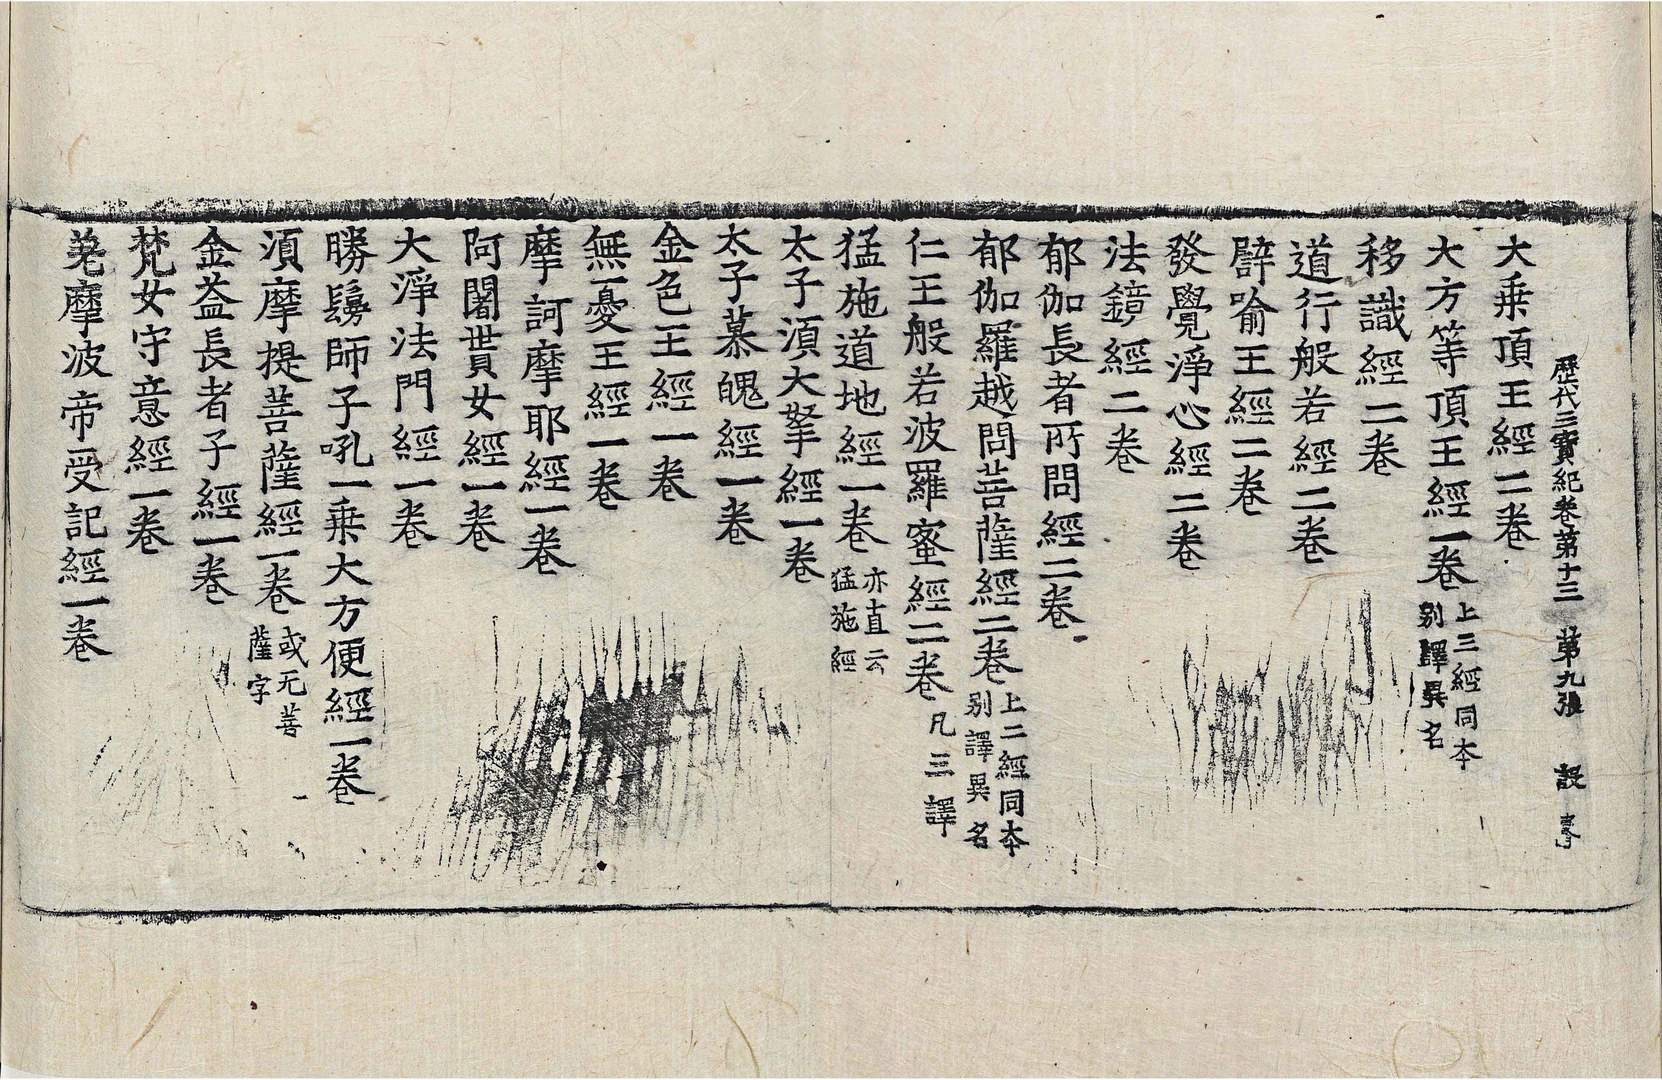 歷代三寶紀卷第十三 第九張 設
大乗頂王經二卷
大方等頂王經一卷 上三經同本别譯異名
移識經二卷
道行般若經二卷
辟喻王經二卷
發覺淨心經二卷
法鏡經二卷
郁伽長者所問經二卷
郁伽羅越問菩薩經二卷 上二經同本别譯異名
仁王般若波羅蜜經二卷 凡三譯
猛施道地經一卷 亦直云猛施經
太子湏大拏經一卷
太子慕魄經一卷
金色王經一卷
無憂王經一卷
摩訶摩耶經一卷
阿闍貰女經一卷
大淨法門經一卷
勝鬘師子吼一乗大方便經一卷
湏摩提菩薩經一卷 或无菩薩字
金益長者子經一卷
梵女守意經一卷
差摩波帝受記經一卷